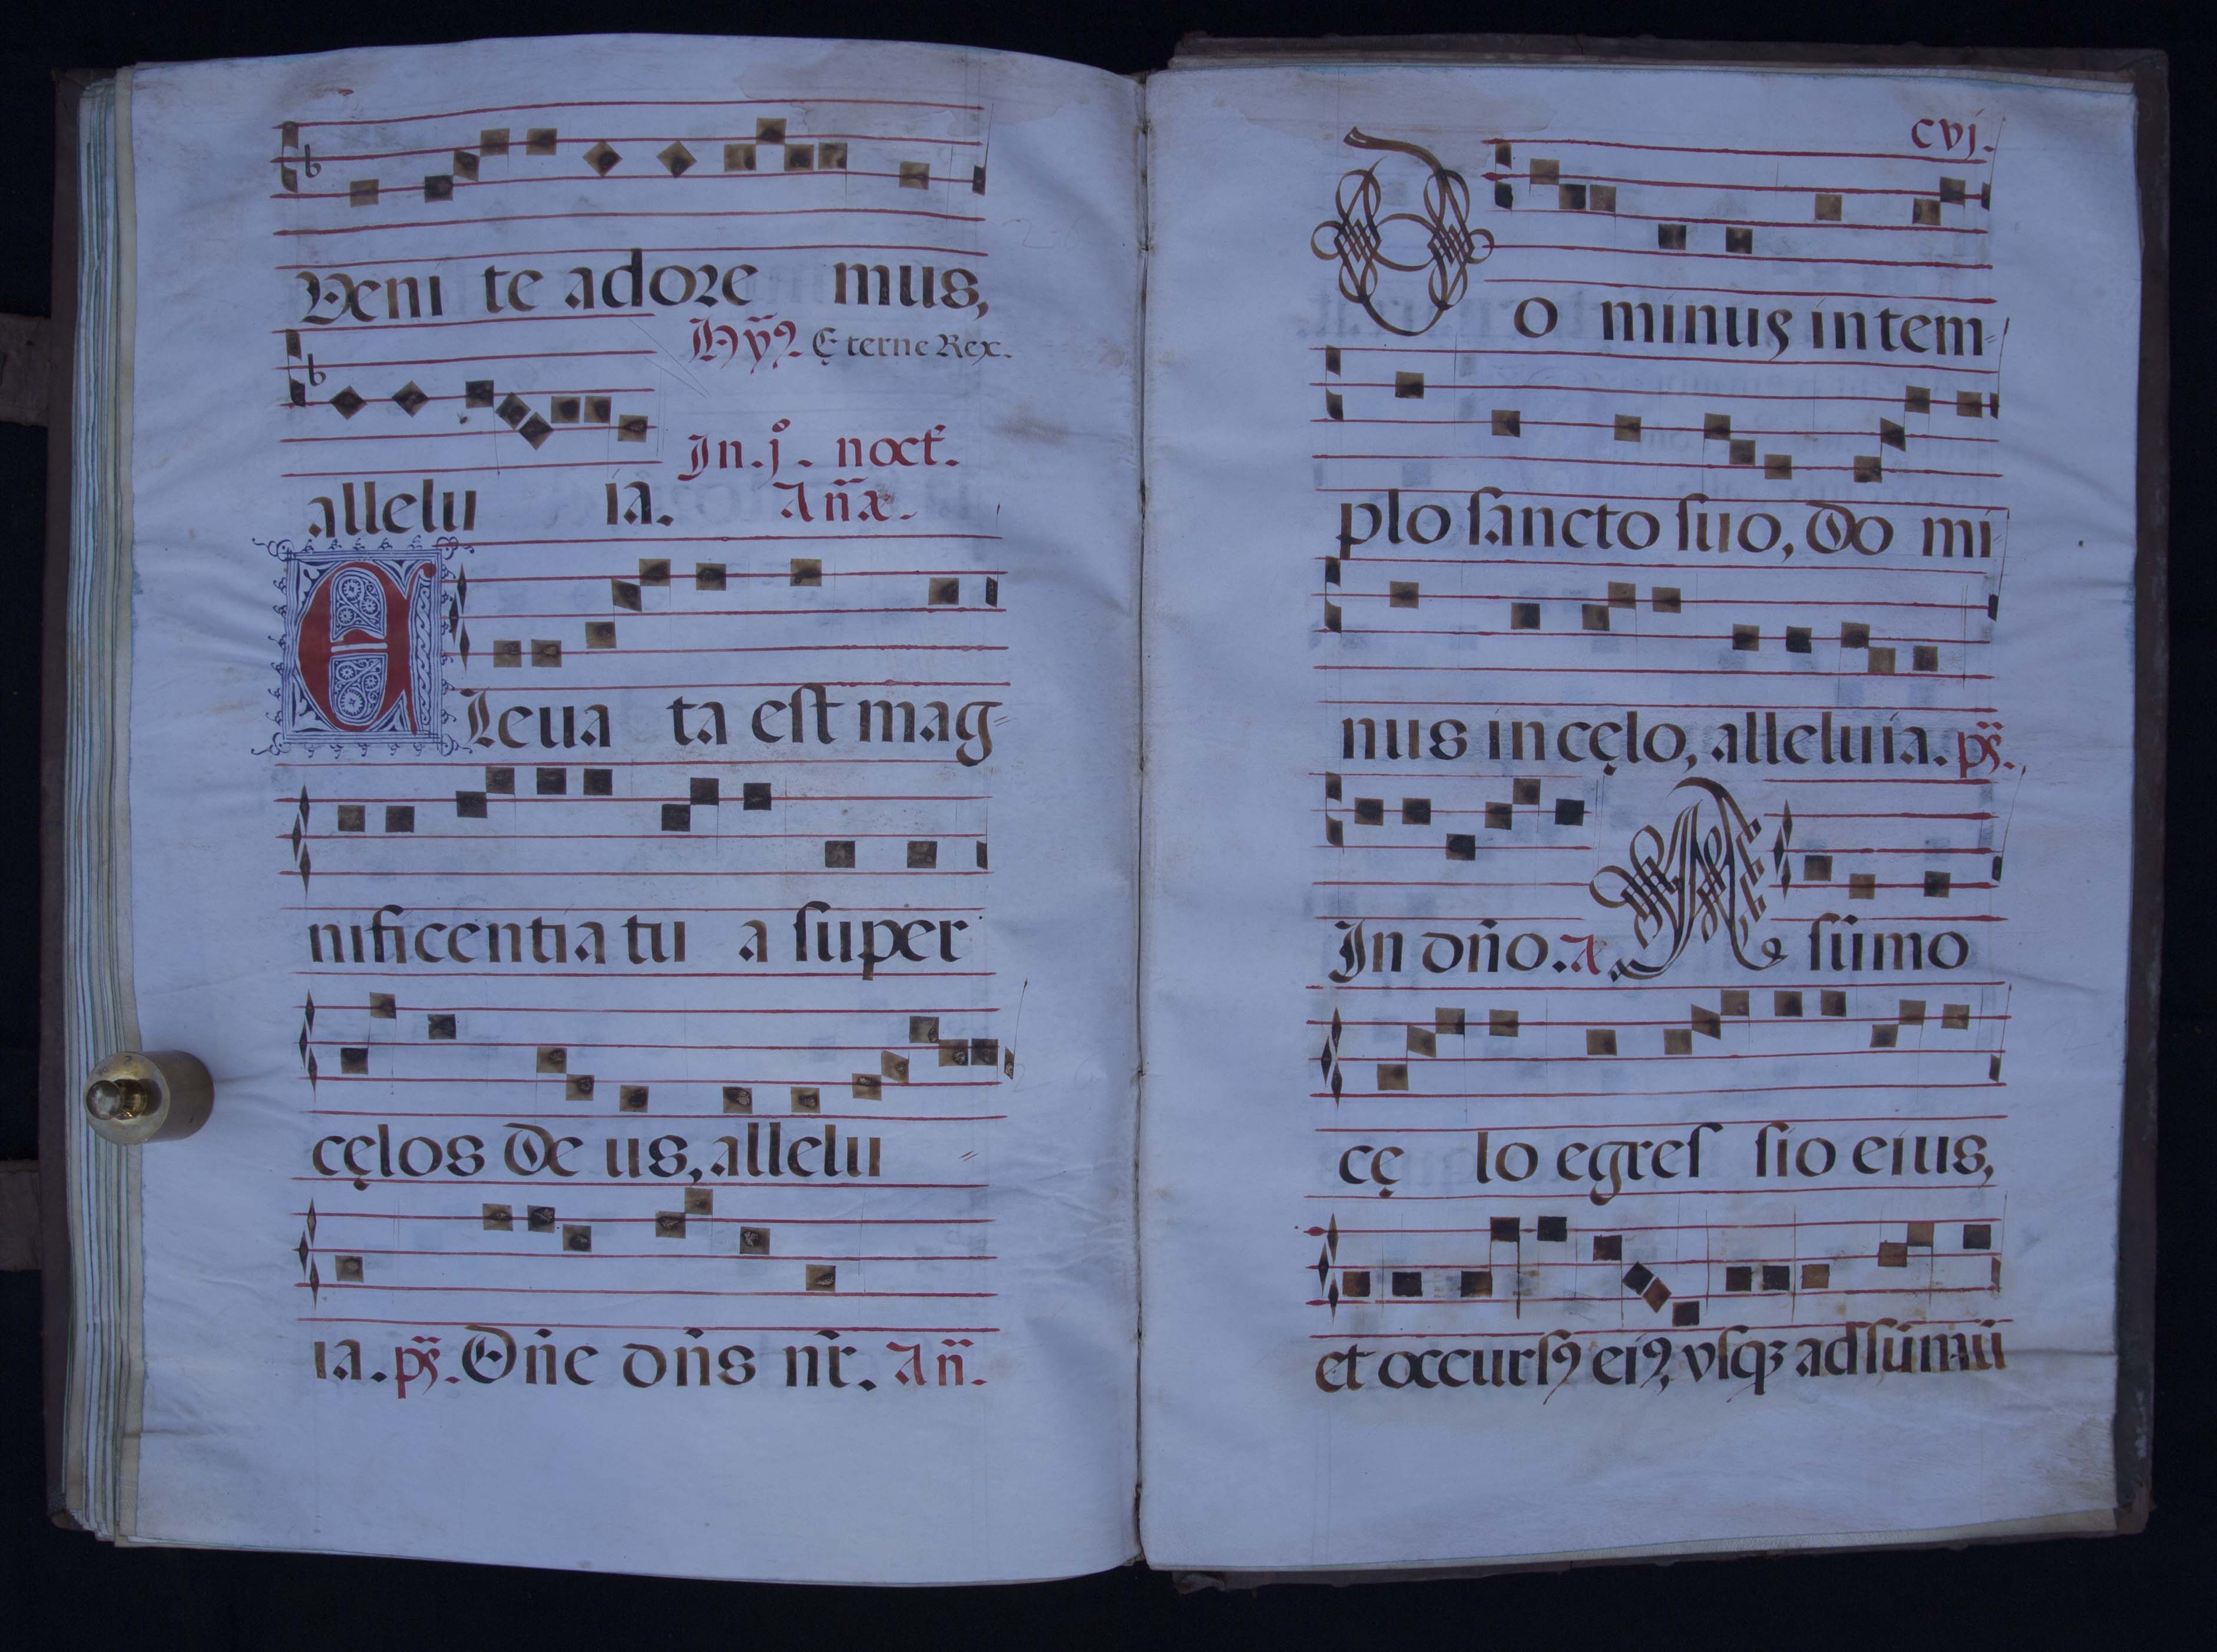 Veni te adore mus,
Hỹꝰ. Eterne Rex.
In .j.º noct̃.
allelu ia. Añæ.
ELeua ta est mag=
nificentia tu a super
cęlos de us, allelu =
ia. ps̃. Dñe dñs nr̃. Añ.
cvj.
Do minus in tem=
plo sancto suo, do mi
nus in cęlo, alleluia. ps̃.
In dño. A. A sũmo
cę lo egres sio eius,
et occursꝰ eiꝰ, vsqꝫ ad sũmũ